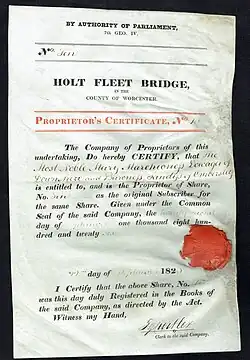 BY AUTHORITY OF PARLIAMENT,
7th GEO. IV.
No. Ten
HOLT FLEET BRIDGE,
IN THE
COUNTY OF WORCESTER.
PROPRIETOR'S CERTIFICATE, No.
The Company of Proprietors of this
undertaking, Do hereby CERTIFY, that the
Most Noble Mary, Marchioness Dowager of
Downshire and Baroness Sandys of Ombersley
is entitled to, and is the Proprietor of Share,
No. Ten as the original Subscriber for
the same Share. Given under the Common
Seal of the said Company, the
day of one thousand eight hun-
dred and twenty
day of 182
I Certify that the above Share, No.
was this day duly Registered in the Books of
the said Company, as directed by the Act.
Witness my Hand,
Clerk to the said Company.